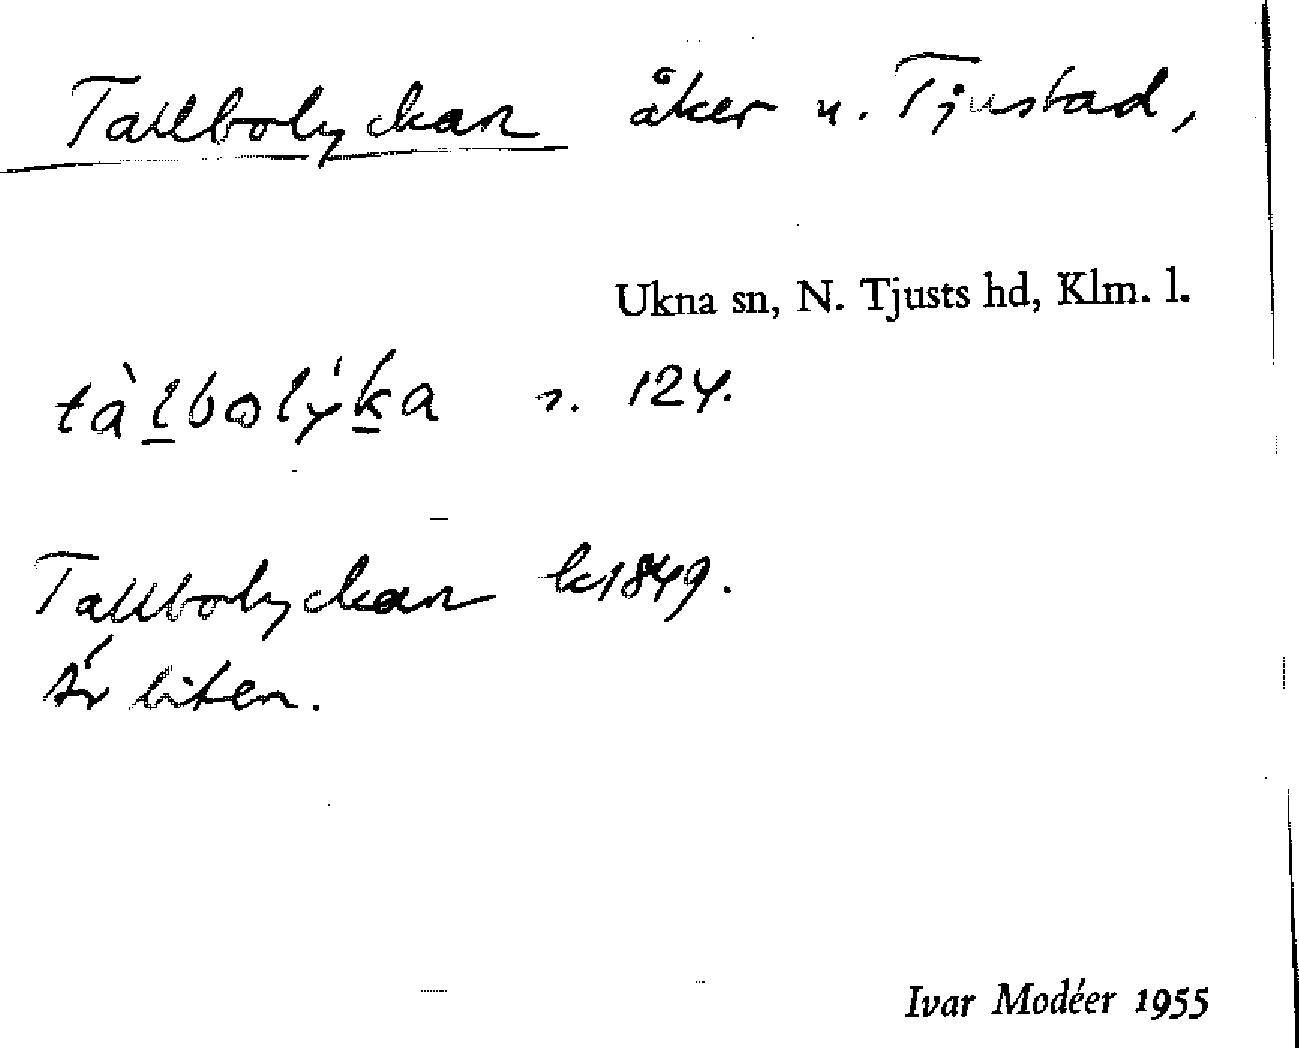 Tallbolyckan åker u. Tjustad,
Ukna sn, N. Tjusts hd, Klm. l.
tàl̲bolẏk̲a s. 124.
Tallbolyckan lk 1849.
Är liten.
Ivar Modéer 1955